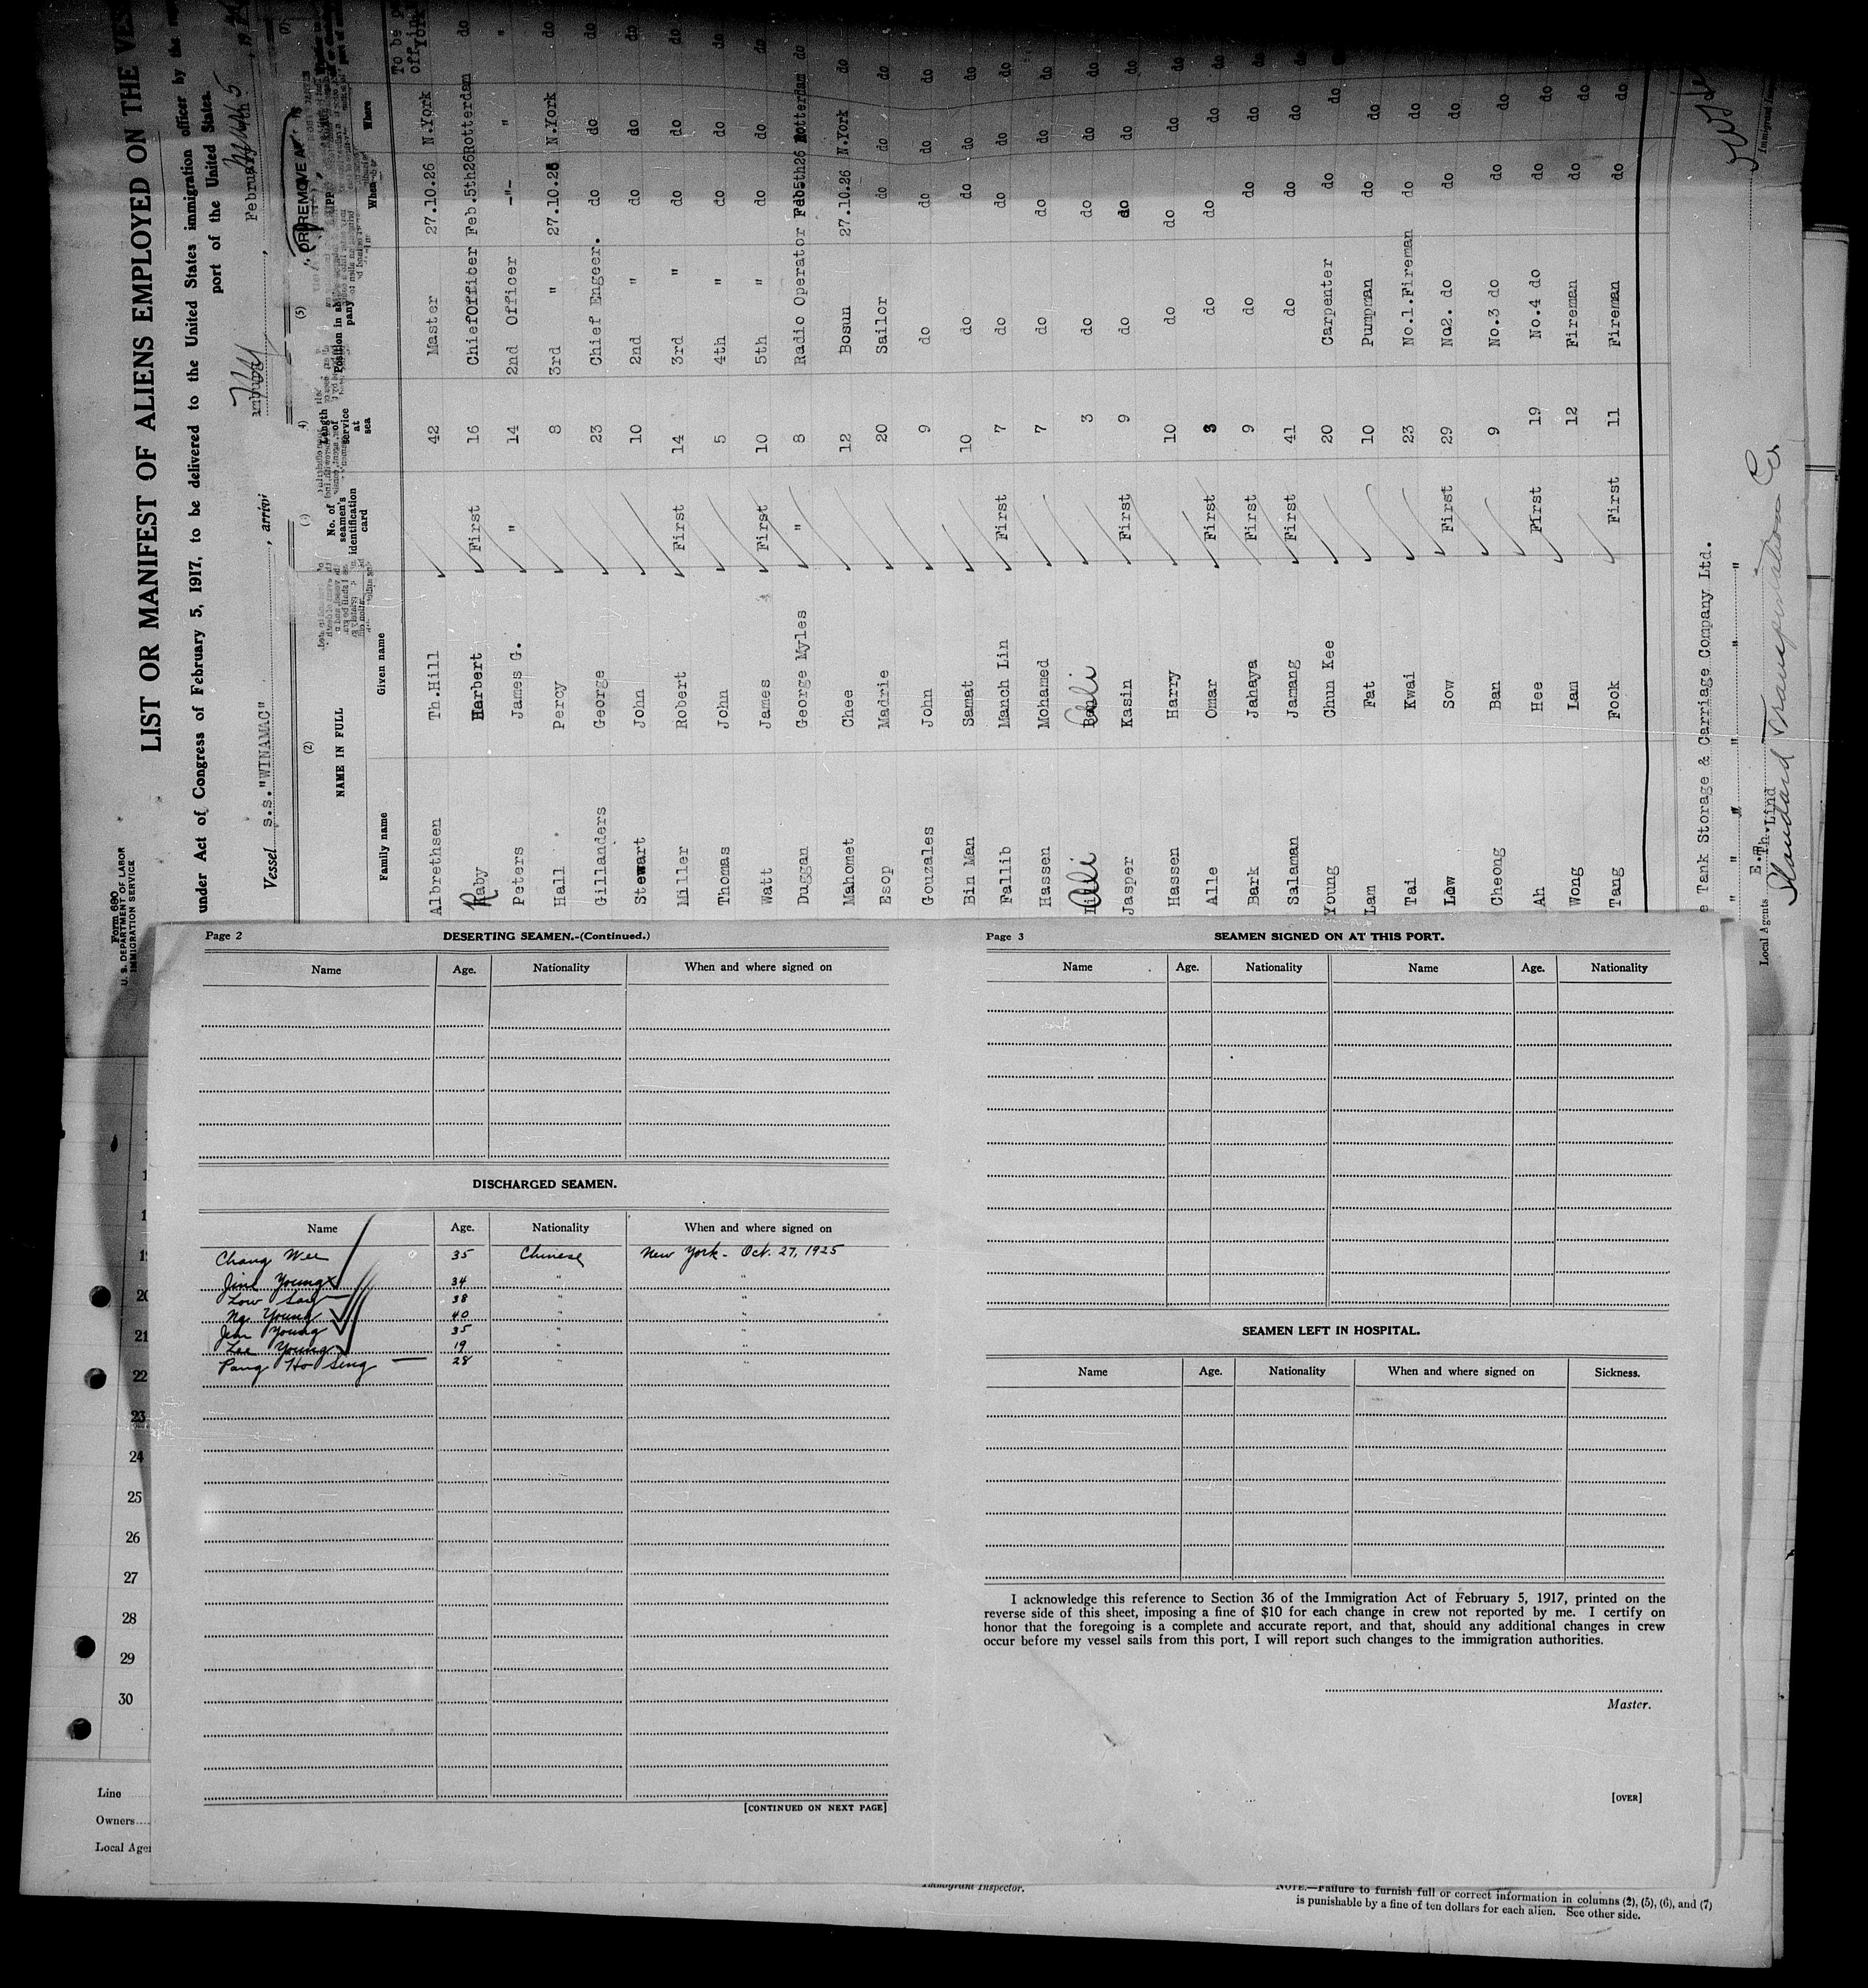 Form 680
U. S. DEPARTMENT OF LABOR
IMMIGRATION SERVICE
LIST OR MANIFEST OF ALIENS EMPLOYED ON THE VES
under Act of Congress of February 5, 1917, to be delivered to the United States immigration officer by the
port of the United States.
Vessel s.s."WINAMAC" , arrivi
(2) (5)
NAME IN FULL No. of seaman's identification card Length of service at sea Position in ship's company
Family name Given name When Where
Albrethsen Th.Hill 42 Master 27.10.26 N.York
Raby Herbert First 16 ChiefOfficer Feb.5th26 Rotterdam do
Peters James G. " 14 2nd Officer -"- " "
Hall Percy 8 3rd " 27.10.26 N.York do
Gillanders George 23 Chief Engeer. do do do
Stewart John 10 2nd " do do do
Miller Robert First 14 3rd " do do do
Thomas John 5 4th " do do do
Watt James First 10 5th " do do do
Duggan George Myles " 8 Radio Operator Feb5th26 Rotterdam do
Mahomet Chee 12 Bosun 27.10.26 N.York do
Esop Madrie 20 Sailor do do do
Gouzales John 9 do do do do
Bin Man Samat 10 do do do do
Fallib Manch Lin First 7 do do do do
Hassen Mohamed 7 do do do do
Ali Ali 3 do do do do
Jasper Kasin First 9 do do do do
Hassen Harry 10 do do do do
Alle Omar First 3 do do do do
Bark Jahaya First 9 do do do do
Salaman Jamang First 41 do do do do
Young Chun Kee 20 Carpenter do do do
Lam Fat 10 Pumpman do do do
Tai Kwai 23 No.1.Fireman do do do
Low Sow First 29 No2. do do do do
Cheong Ban 9 No.3 do do do do
Ah Hee First 19 No.4 do do do do
Wong Lam 12 Fireman do do do
Tang Fook First 11 Fireman do do do
e Tank Storage & Carriage Company Ltd.
" " " " "
Local Agents
Standard Transportation Co.
Page 2 DESERTING SEAMEN.-(Continued.)
Name Age. Nationality When and where signed on
DISCHARGED SEAMEN.
Name Age. Nationality When and where signed on
Chang Wee 35 Chinese New York - Oct. 27, 1925
Jine Young x 34 " "
Low Say 38 " "
Ng. Young 40 " "
Jem Young 35 " "
Lee Young 19 " "
Pang Ho Seng 28 " "
[CONTINUED ON NEXT PAGE]
Page 3 SEAMEN SIGNED ON AT THIS PORT.
Name Age. Nationality Name Age. Nationality
SEAMEN LEFT IN HOSPITAL.
Name Age. Nationality When and where signed on Sickness.
I acknowledge this reference to Section 36 of the Immigration Act of February 5, 1917, printed on the
reverse side of this sheet, imposing a fine of $10 for each change in crew not reported by me. I certify on
honor that the foregoing is a complete and accurate report, and that, should any additional changes in crew
occur before my vessel sails from this port, I will report such changes to the immigration authorities.
Master.
[OVER]
20
21
22
23
24
25
26
27
28
29
30
Line
Owners
Local Agen
Immigrant Inspector.
NOTE.—Failure to furnish full or correct information in columns (2), (5), (6), and (7)
is punishable by a fine of ten dollars for each alien. See other side.